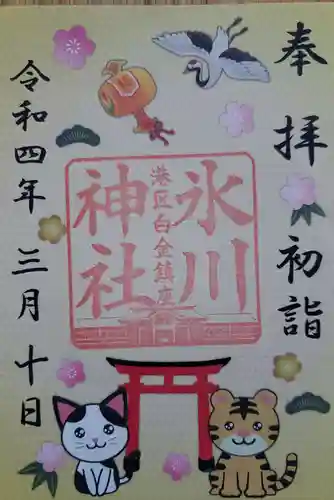 奉拝 初詣
氷川
港区白金鎮座
神社
令和四年 三月 十日